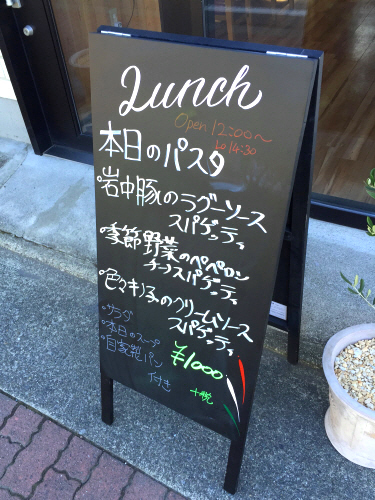 Lunch
Open 12:00〜
to 14:30
本日のパスタ
°岩中豚のラグーソース
スパゲッティ
°季節野菜のペペロン
チーノスパゲッティ
°色々キノ子のクリームソース
スパゲッティ
°サラダ
°本日のスープ
°自家製パン
付き
¥1000
+税